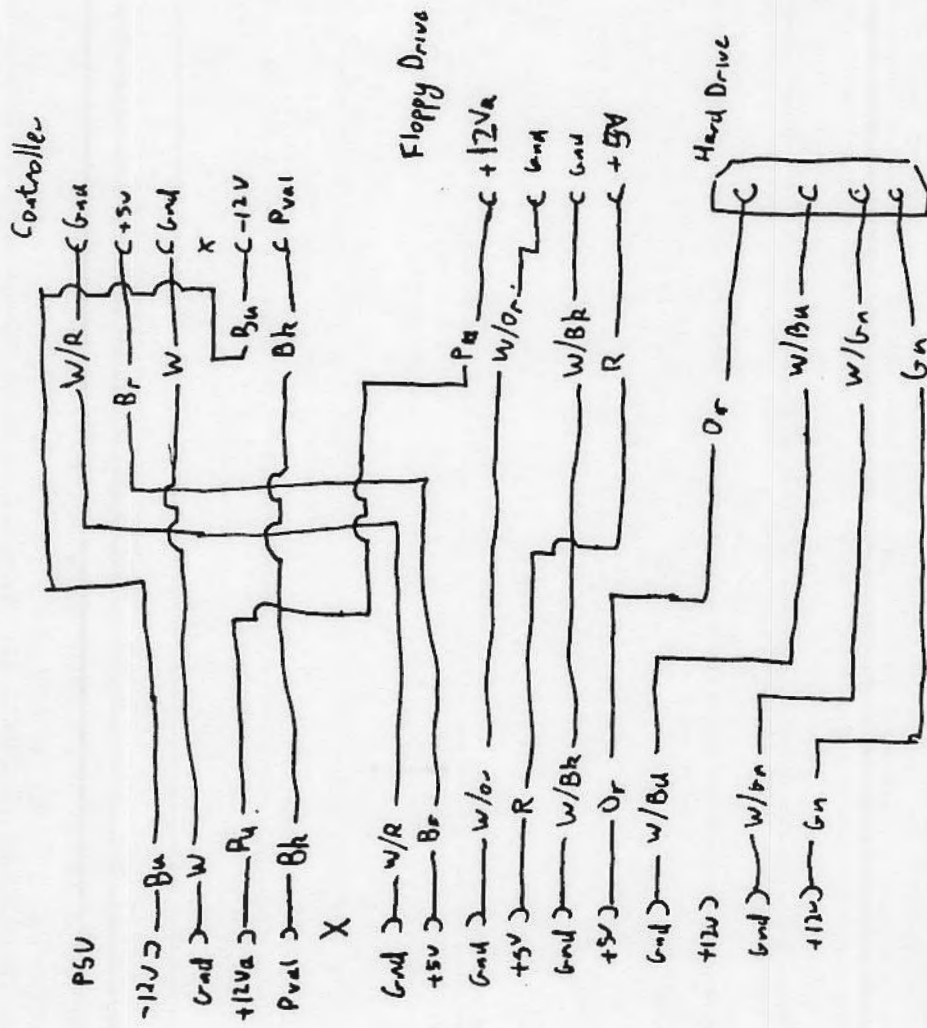 PSU
-12V Bu
Gnd W
+12Va Pu
Pval Bk
X
Gnd W/R
+5V Br
Gnd W/or
+5V R
Gnd W/Bk
+5V Or
Gnd W/Bu
+12V
Gnd W/Gn
+12V Gn
Controller
W/R Gnd
Br +5V
W Gnd
x
Bu -12V
Bk Pval
Floppy Drive
+12Va
W/Or Gnd
W/Bk Gnd
R +5V
Hard Drive
Or
W/Bu
W/Gn
Gn